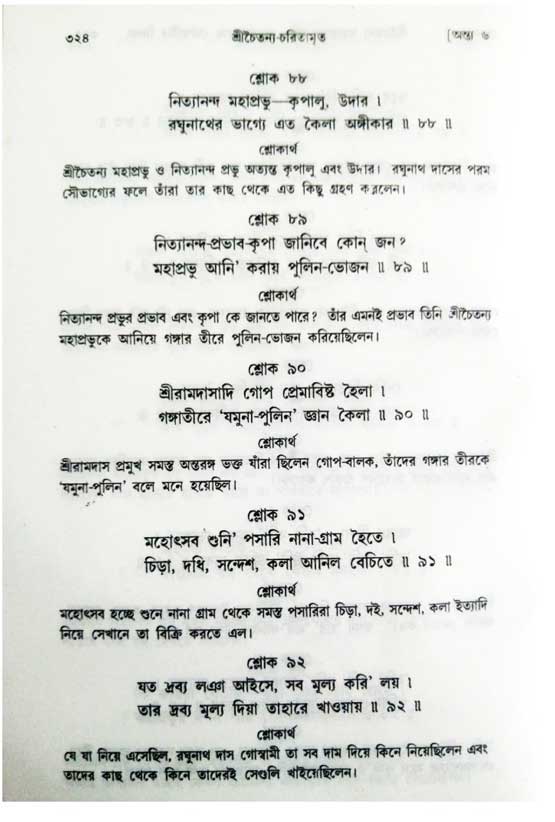 ৩২৪ শ্রীচৈতন্য-চরিতামৃত [অন্ত্য ৬
শ্লোক ৮৮
নিত্যানন্দ মহাপ্রভু—কৃপালু, উদার ।
রঘুনাথের ভাগ্যে এত কৈলা অঙ্গীকার ॥ ৮৮ ॥
শ্লোকার্থ
শ্রীচৈতন্য মহাপ্রভু ও নিত্যানন্দ প্রভু অত্যন্ত কৃপালু এবং উদার। রঘুনাথ দাসের পরম
সৌভাগ্যের ফলে তাঁরা তার কাছ থেকে এত কিছু গ্রহণ করলেন।
শ্লোক ৮৯
নিত্যানন্দ-প্রভাব-কৃপা জানিবে কোন্ জন?
মহাপ্রভু আনি' করায় পুলিন-ভোজন ॥ ৮৯ ॥
শ্লোকার্থ
নিত্যানন্দ প্রভুর প্রভাব এবং কৃপা কে জানতে পারে? তাঁর এমনই প্রভাব তিনি শ্রীচৈতন্য
মহাপ্রভুকে আনিয়ে গঙ্গার তীরে পুলিন-ভোজন করিয়েছিলেন।
শ্লোক ৯০
শ্রীরামদাসাদি গোপ প্রেমাবিষ্ট হৈলা ।
গঙ্গাতীরে 'যমুনা-পুলিন' জ্ঞান কৈলা ॥ ৯০ ॥
শ্লোকার্থ
শ্রীরামদাস প্রমুখ সমস্ত অন্তরঙ্গ ভক্ত যাঁরা ছিলেন গোপ-বালক, তাঁদের গঙ্গার তীরকে
'যমুনা-পুলিন' বলে মনে হয়েছিল।
শ্লোক ৯১
মহোৎসব শুনি' পসারি নানা-গ্রাম হৈতে ।
চিড়া, দধি, সন্দেশ, কলা আনিল বেচিতে ॥ ৯১ ॥
শ্লোকার্থ
মহোৎসব হচ্ছে শুনে নানা গ্রাম থেকে সমস্ত পসারিরা চিড়া, দই, সন্দেশ, কলা ইত্যাদি
নিয়ে সেখানে তা বিক্রি করতে এল।
শ্লোক ৯২
যত দ্রব্য লঞা আইসে, সব মূল্য করি' লয় ।
তার দ্রব্য মূল্য দিয়া তাহারে খাওয়ায় ॥ ৯২ ॥
শ্লোকার্থ
যে যা নিয়ে এসেছিল, রঘুনাথ দাস গোস্বামী তা সব দাম দিয়ে কিনে নিয়েছিলেন এবং
তাদের কাছ থেকে কিনে তাদেরই সেগুলি খাইয়েছিলেন।